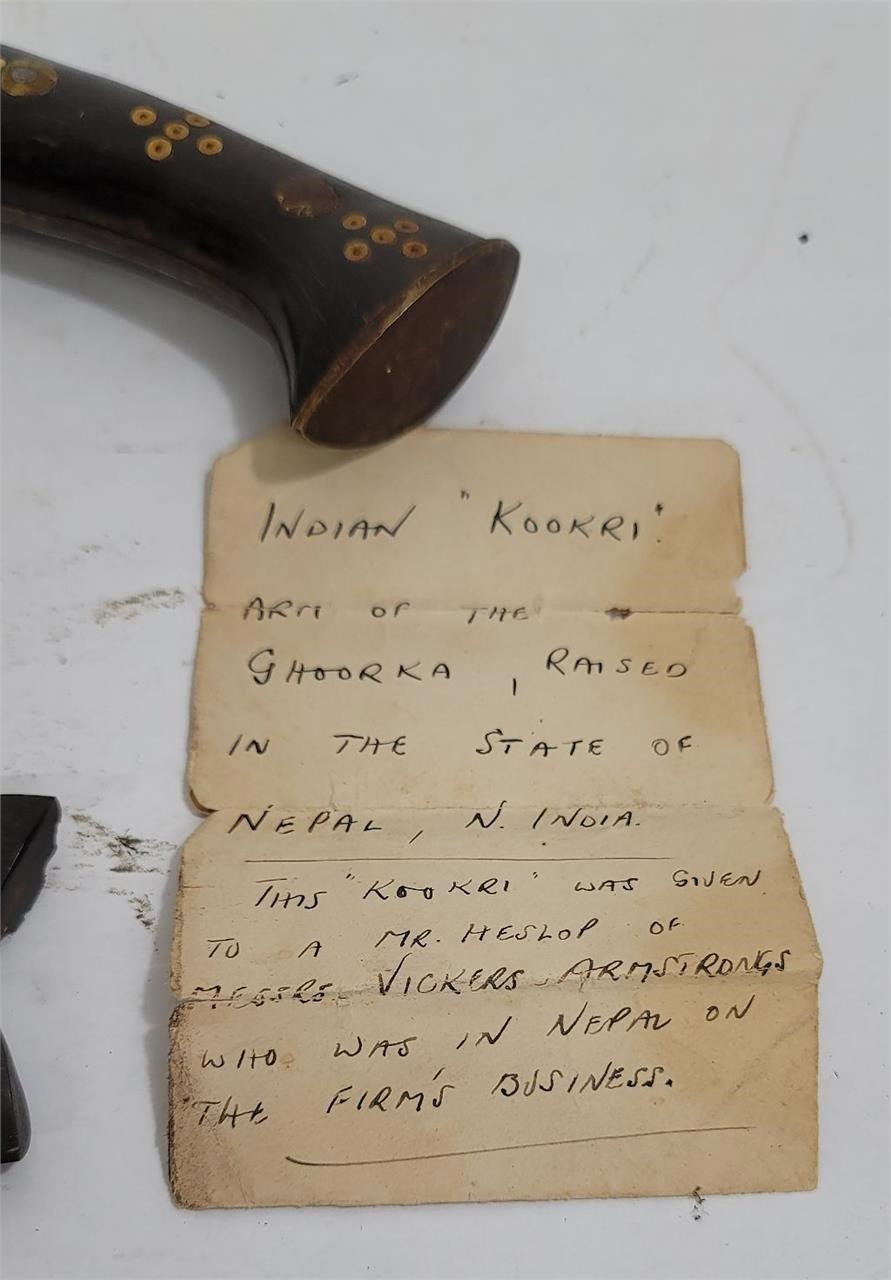 INDIAN "KOOKRI".
ARM OF THE
GHOORKA, RAISED
IN THE STATE OF
NEPAL, N. INDIA.
THIS "KOOKRI" WAS GIVEN
TO A MR. HESLOP OF
MESSRS. VICKERS ARMSTRONGS
WHO WAS, IN NEPAL ON
THE FIRM'S BUSINESS.